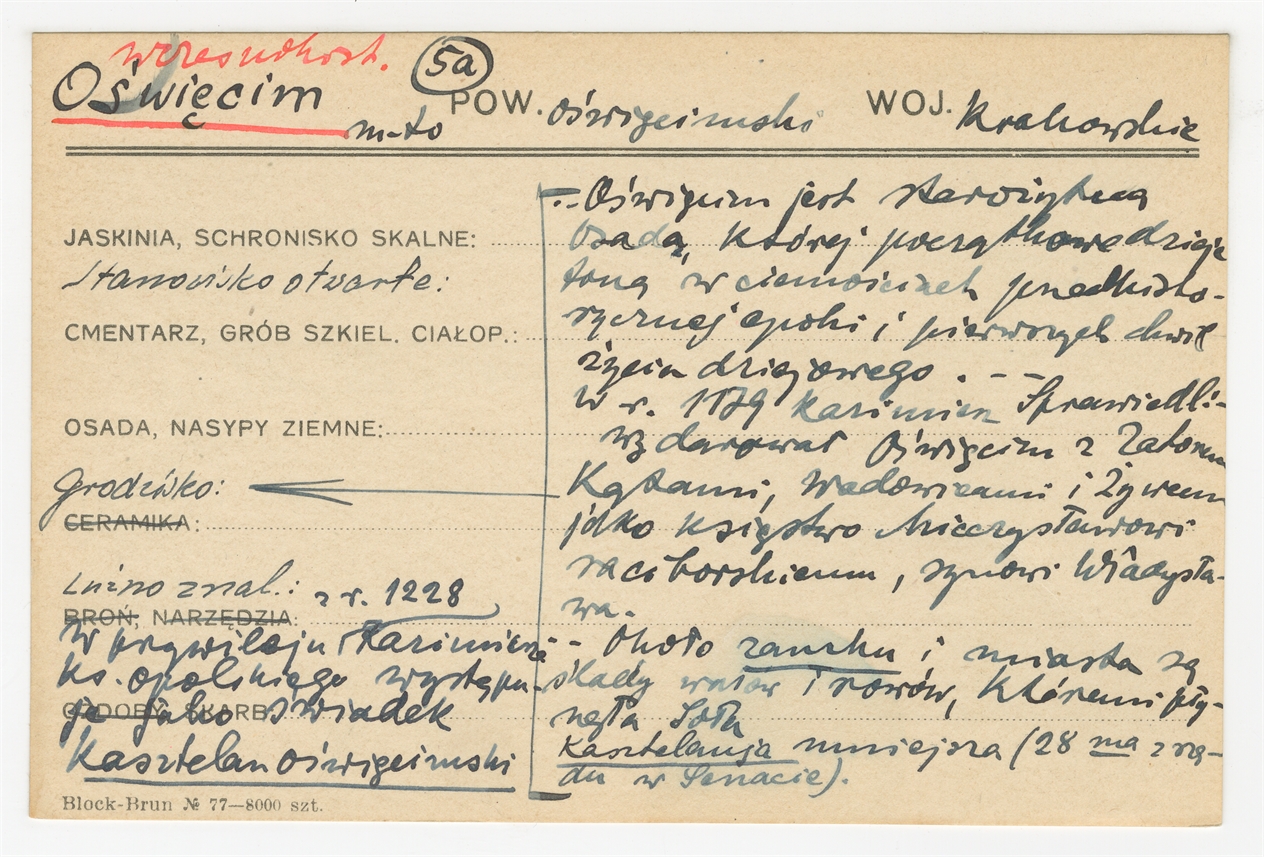 wczesnohist.
Oświęcim 5a
m-to POW. oświęcimski WOJ. Krakowskie
JASKINIA, SCHRONISKO SKALNE:
Stanowisko otwarte:
CMENTARZ, GRÓB SZKIEL. CIAŁOP.:
OSADA, NASYPY ZIEMNE:
Grodzisko:
CERAMIKA:
Luźno znal.: z r. 1228
BROŃ, NARZĘDZIA:
w przywileju Kazimierza
ks. opolskiego występu-
je jako świadek
GODOBY, SKARB:
Kasztelan oświęcimski
Block-Brun № 77—8000 szt.
- Oświęcim jest starożytną
osadą, której początkowe dzieje
toną w ciemościach przedhisto-
rycznej epoki i pierwszych chwil
życia dziejowego. - -
W r. 1179 Kazimierz Sprawiedli-
wy darował Oświęcim z Zatorem
Kętami, Wadowicami i Żywcem
jako księstwo Mieczysławowi
raciborskiemu, synowi Władysła-
wa.
- Około zamku i miasta są
ślady wałów i rowów, któremi pły-
nęła Soła
Kasztelanja mniejsza (28 ma z rzę-
du w Senacie).